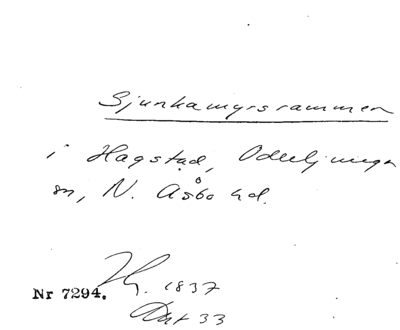 Sjunkamyrsrammen
i Hagstad, Oderljunga
sn, N. Åsbo hd.
Hg. 1837
Nr 7294.
Akt 33